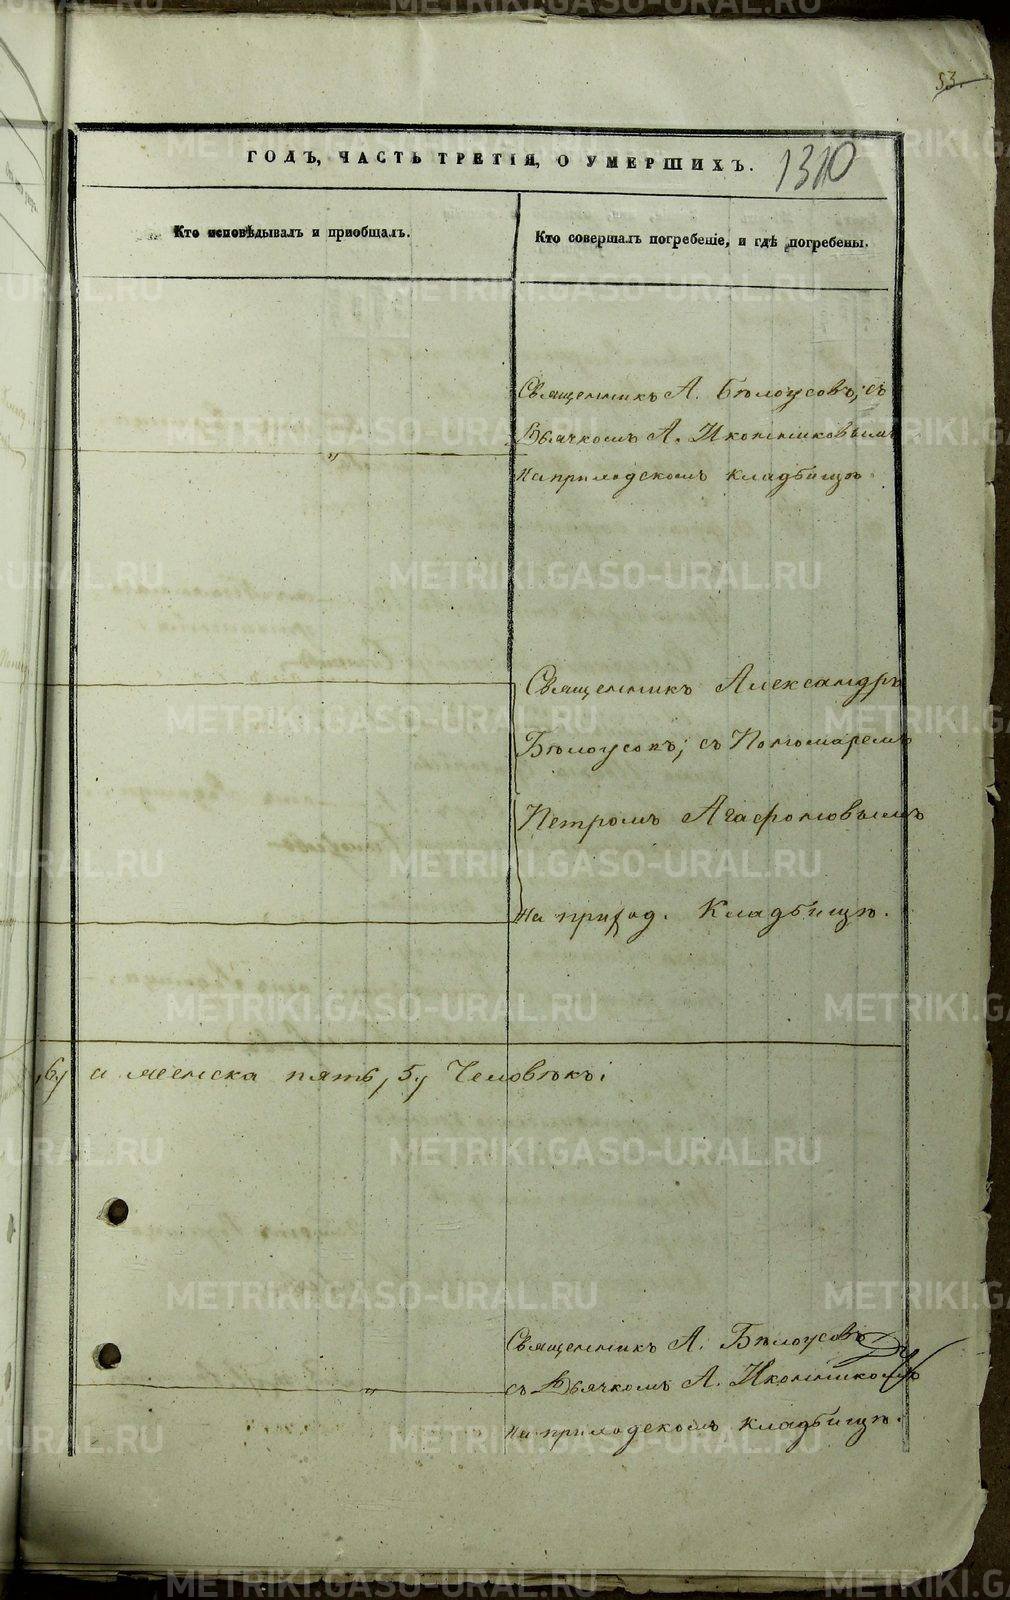 53.
ГОДЪ, ЧАСТЬ ТРЕТІЯ, О УМЕРШИХЪ.
1310
Кто исповѣдывалъ и пріобщалъ.
Кто совершалъ погребеніе, и гдѣ погребены.
Священникъ А. Бѣлоусовъ, съ
Дьячкомъ А. Иконниковымъ
на приходскомъ кладбищѣ.
Священникъ Александръ
Бѣлоусовъ, съ Пономаремъ
Петромъ Агафоновымъ
на приход. Кладбищѣ.
6, а женска пять, 5, Человѣкъ.
Священникъ А. Бѣлоусовъ
съ Дьячкомъ А. Иконниковымъ
на приходскомъ кладбищѣ.
METRIKI.GASO-URAL.RU